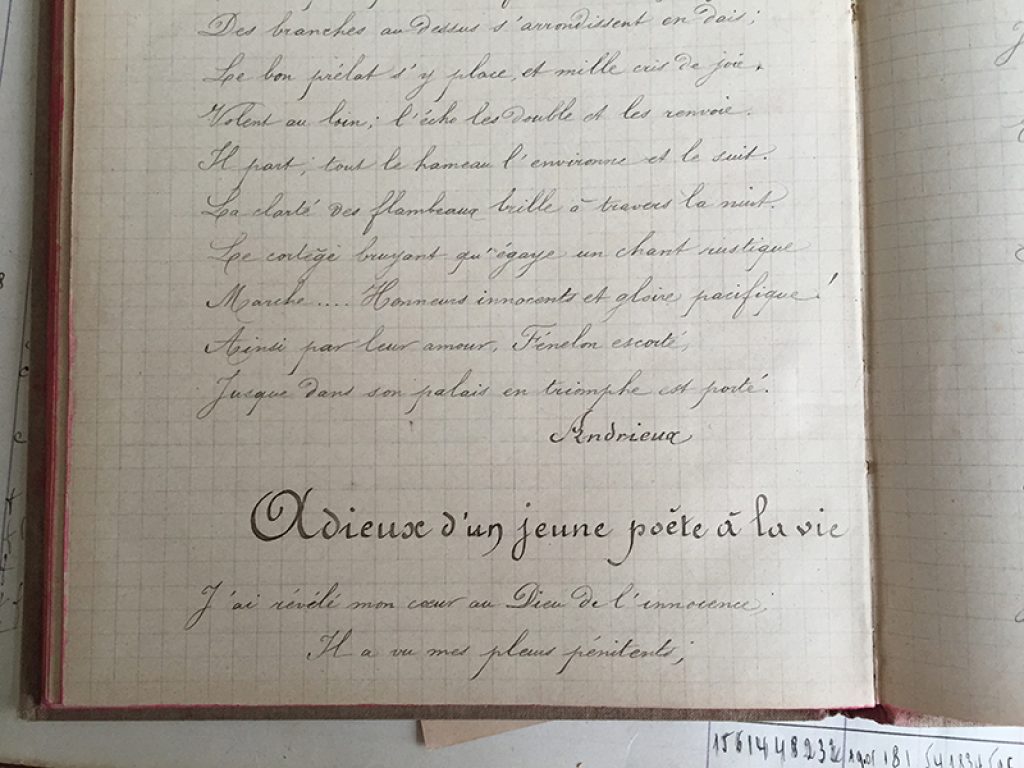 Des branches au dessus s'arrondissent en dais;
Le bon prélat s'y place, et mille cris de joie,
Volent au loin; l'écho les double et les renvoie.
Il part; tout le hameau l'environne et le suit.
La clarté des flambeaux brille à travers la nuit.
Le cortège bruyant qu'égaye un chant rustique
Marche.... Honneurs innocents et gloire pacifique!
Ainsi par leur amour, Fénelon escorté,
Jusque dans son palais en triomphe est porté.
Andrieux
Adieux d'un jeune poète à la vie
J'ai révélé mon cœur au Dieu de l'innocence;
Il a vu mes pleurs pénitents;